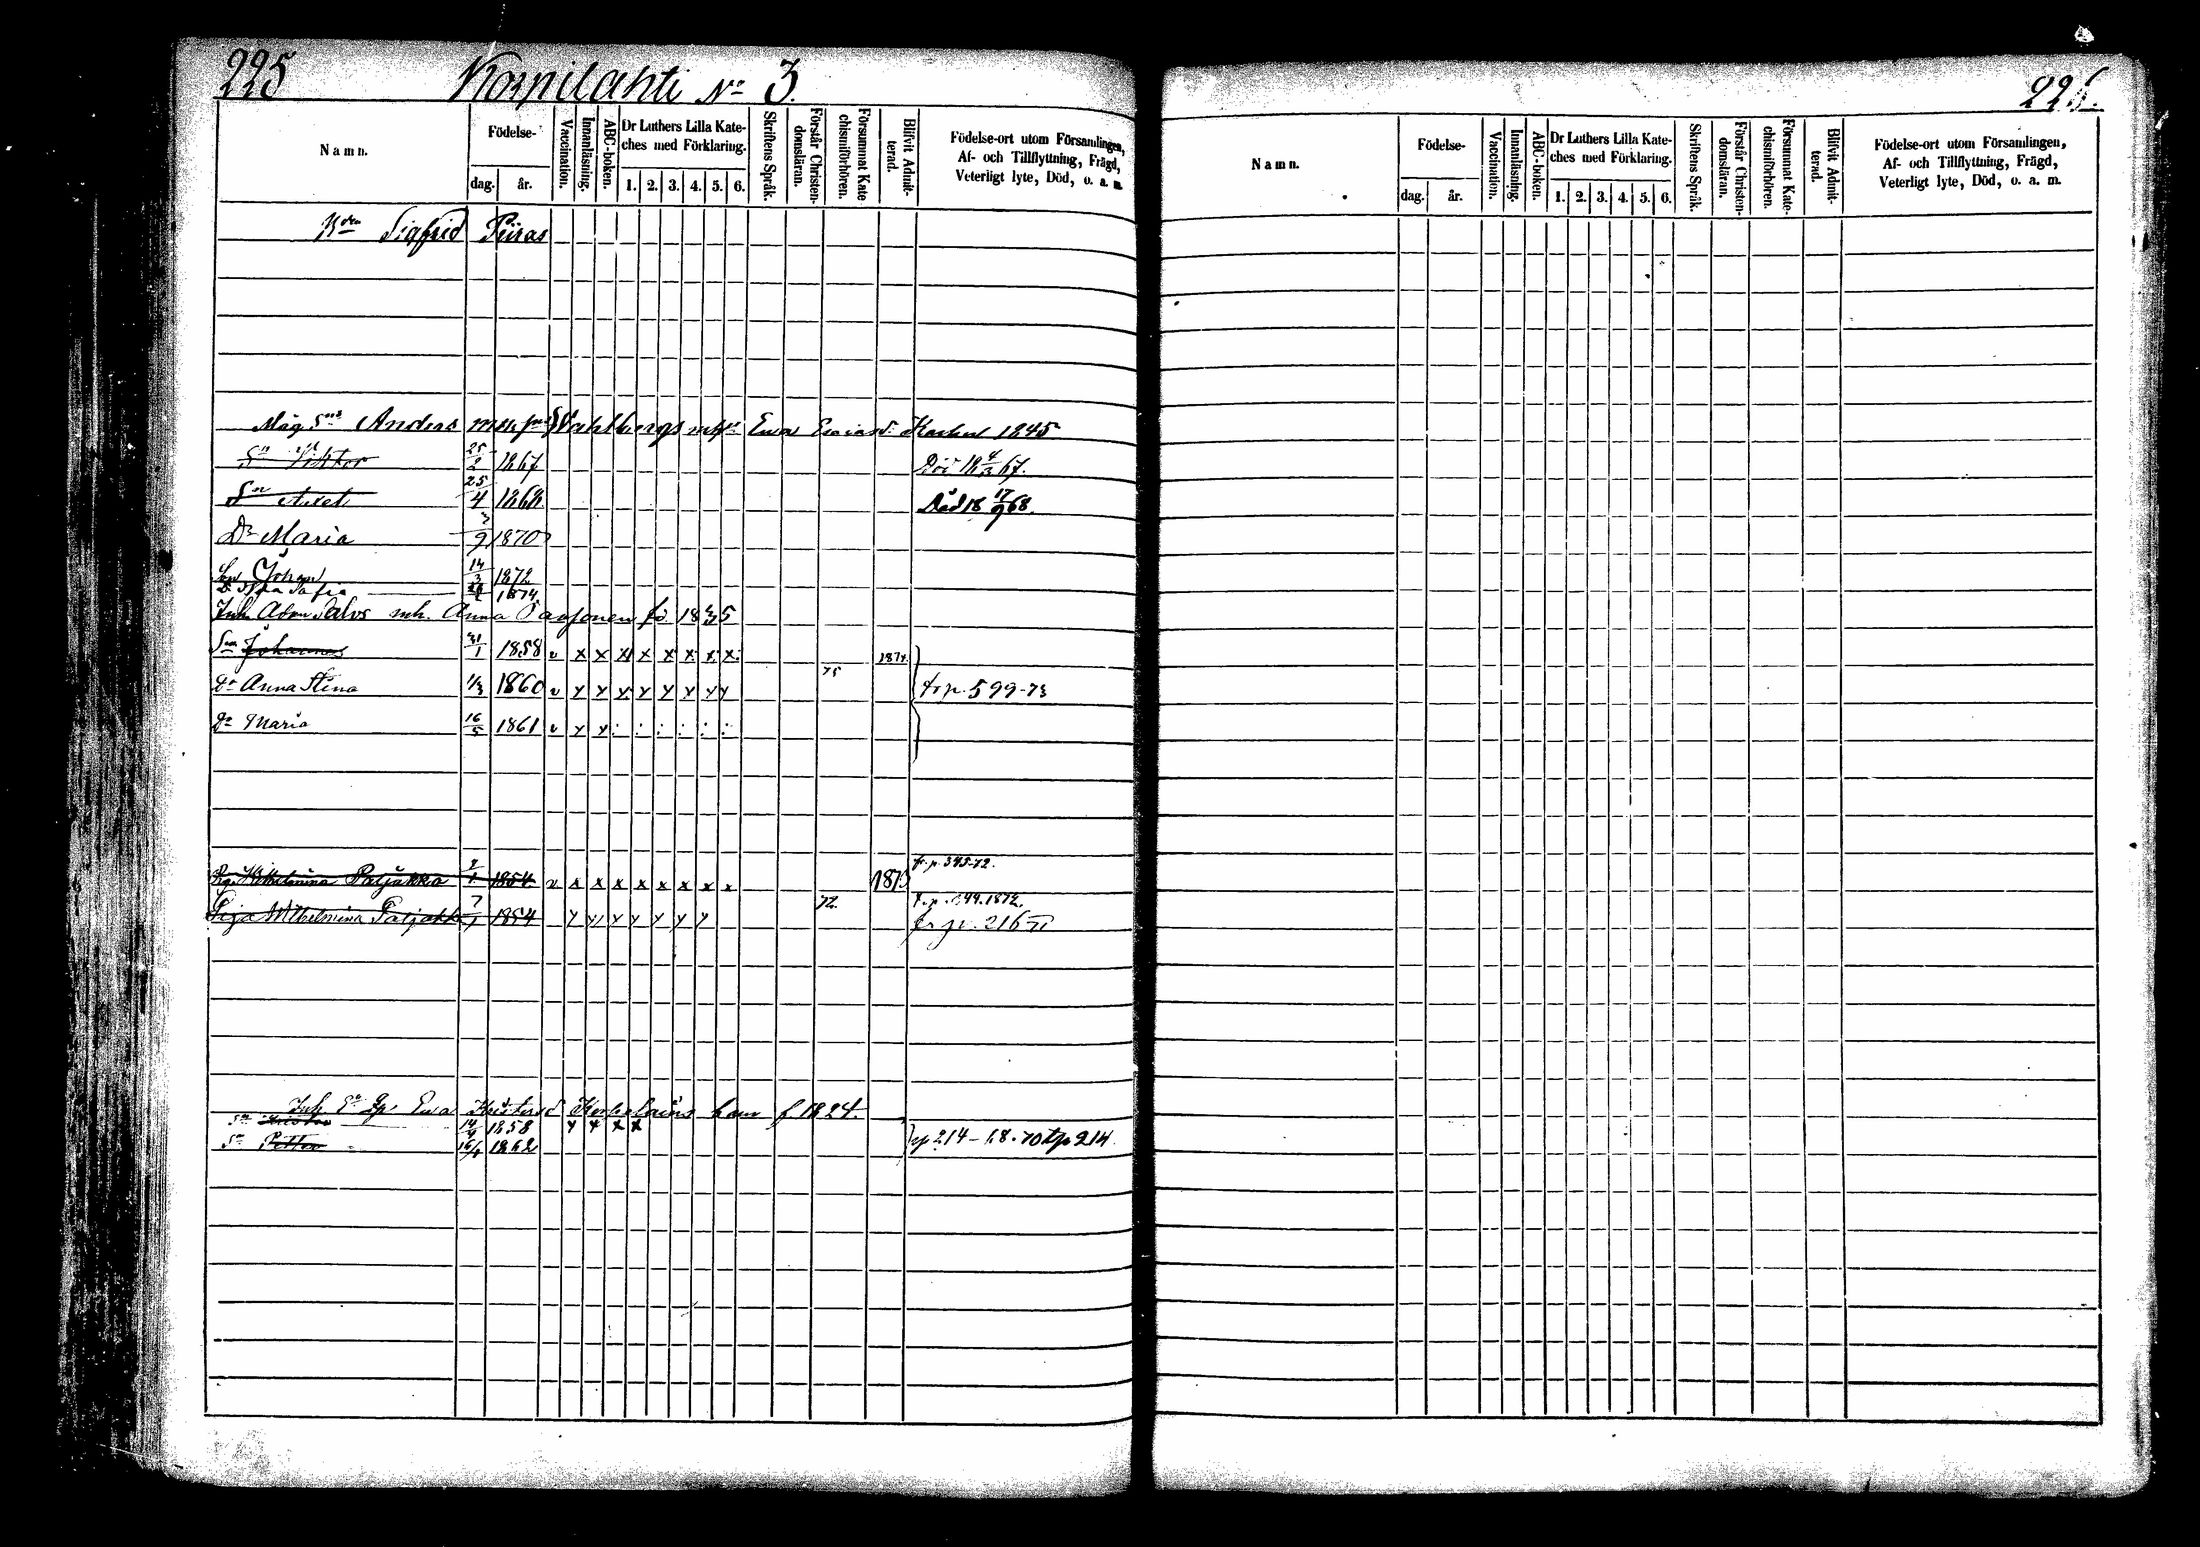 225
Korpilahti No 3.
Namn.
Födelse-
dag.
år.
Vaccination.
Innanläsning.
ABC-boken.
Dr Luthers Lilla Kate-
ches med Förklaring.
1. 2. 3. 4. 5. 6.
Skriftens Språk.
Förstår Christen-
domsläran.
Försummat Kate
chismiförhören.
Blifvit Admit-
terad.
Födelse-ort utom Församlingen,
Af- och Tillflyttning, Frägd,
Veterligt lyte, Död, o. a. m.
Sigfrid Peiras
Måg Anders Wahlbergs Ewa Esaiasd: 1845
Sn Viktor 25/2 1867 Död 18 4/3 67.
Sn Axel 25/4 1868 Död 18 17/9 68.
Dr Maria 3/9 1870
Son Johan 14/3 1872
Sofia 1874
Inh. Salvs mh. Anna Paavonen 1835
Sn Johannes 31/1 1858 v x x x x x x x x 1874.
Dr Anna Stina 1/3 1860 v x x x x x x x x 75 fr p. 599-73
Dr Maria 16/5 1861 v x x : : : : : :
Pig. Wilhelmina Paljakka 7/1 1854 v x x x x x x x x 187 fr. p. 345-72.
Piga Wilhelmina Paljakka 7/1 1854 x x x x x x x 72. 1872.
fr p. 216
Inh Ewa Korhelains f 1824.
Sn 14/4 1858 x x x x
Sn Petter 16/9 1862 p 214-68.70 tp 214
226.
Namn.
Födelse-
dag.
år.
Vaccination.
Innanläsning.
ABC-boken.
Dr Luthers Lilla Kate-
ches med Förklaring.
1. 2. 3. 4. 5. 6.
Skriftens Språk.
Förstår Christen-
domsläran.
Försummat Kate-
chismiförhören.
Blifvit Admit-
terad.
Födelse-ort utom Församlingen,
Af- och Tillflyttning, Frägd,
Veterligt lyte, Död, o. a. m.